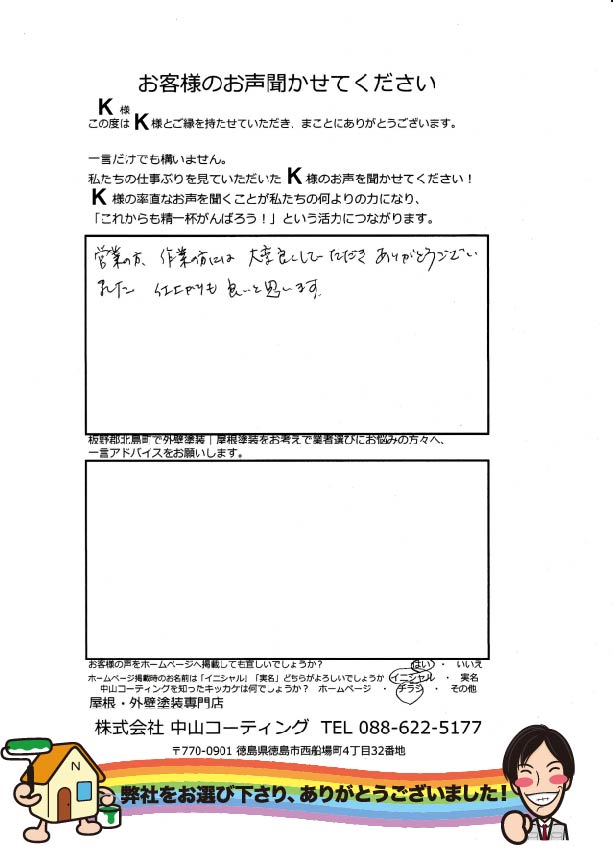 お客様のお声聞かせてください
K 様
この度は K 様とご縁を持たせていただき、まことにありがとうございます。
一言だけでも構いません。
私たちの仕事ぶりを見ていただいた K 様のお声を聞かせてください！
K 様の率直なお声を聞くことが私たちの何よりの力になり、
「これからも精一杯がんばろう！」という活力につながります。
営業の方、作業の方には 大変良くして いただき ありがとうござい
ました 仕上がりも 良いと思います。
板野郡北島町で外壁塗装｜屋根塗装をお考えで業者選びにお悩みの方々へ、
一言アドバイスをお願いします。
お客様の声をホームページへ掲載しても宜しいでしょうか？ はい ・ いいえ
ホームページ掲載時のお名前は「イニシャル」「実名」どちらがよろしいでしょうか イニシャル ・ 実名
中山コーティングを知ったキッカケは何でしょうか？ ホームページ ・ チラシ ・ その他
屋根・外壁塗装専門店
株式会社 中山コーティング TEL 088-622-5177
〒770-0901 徳島県徳島市西船場町4丁目32番地
N
弊社をお選び下さり、ありがとうございました！